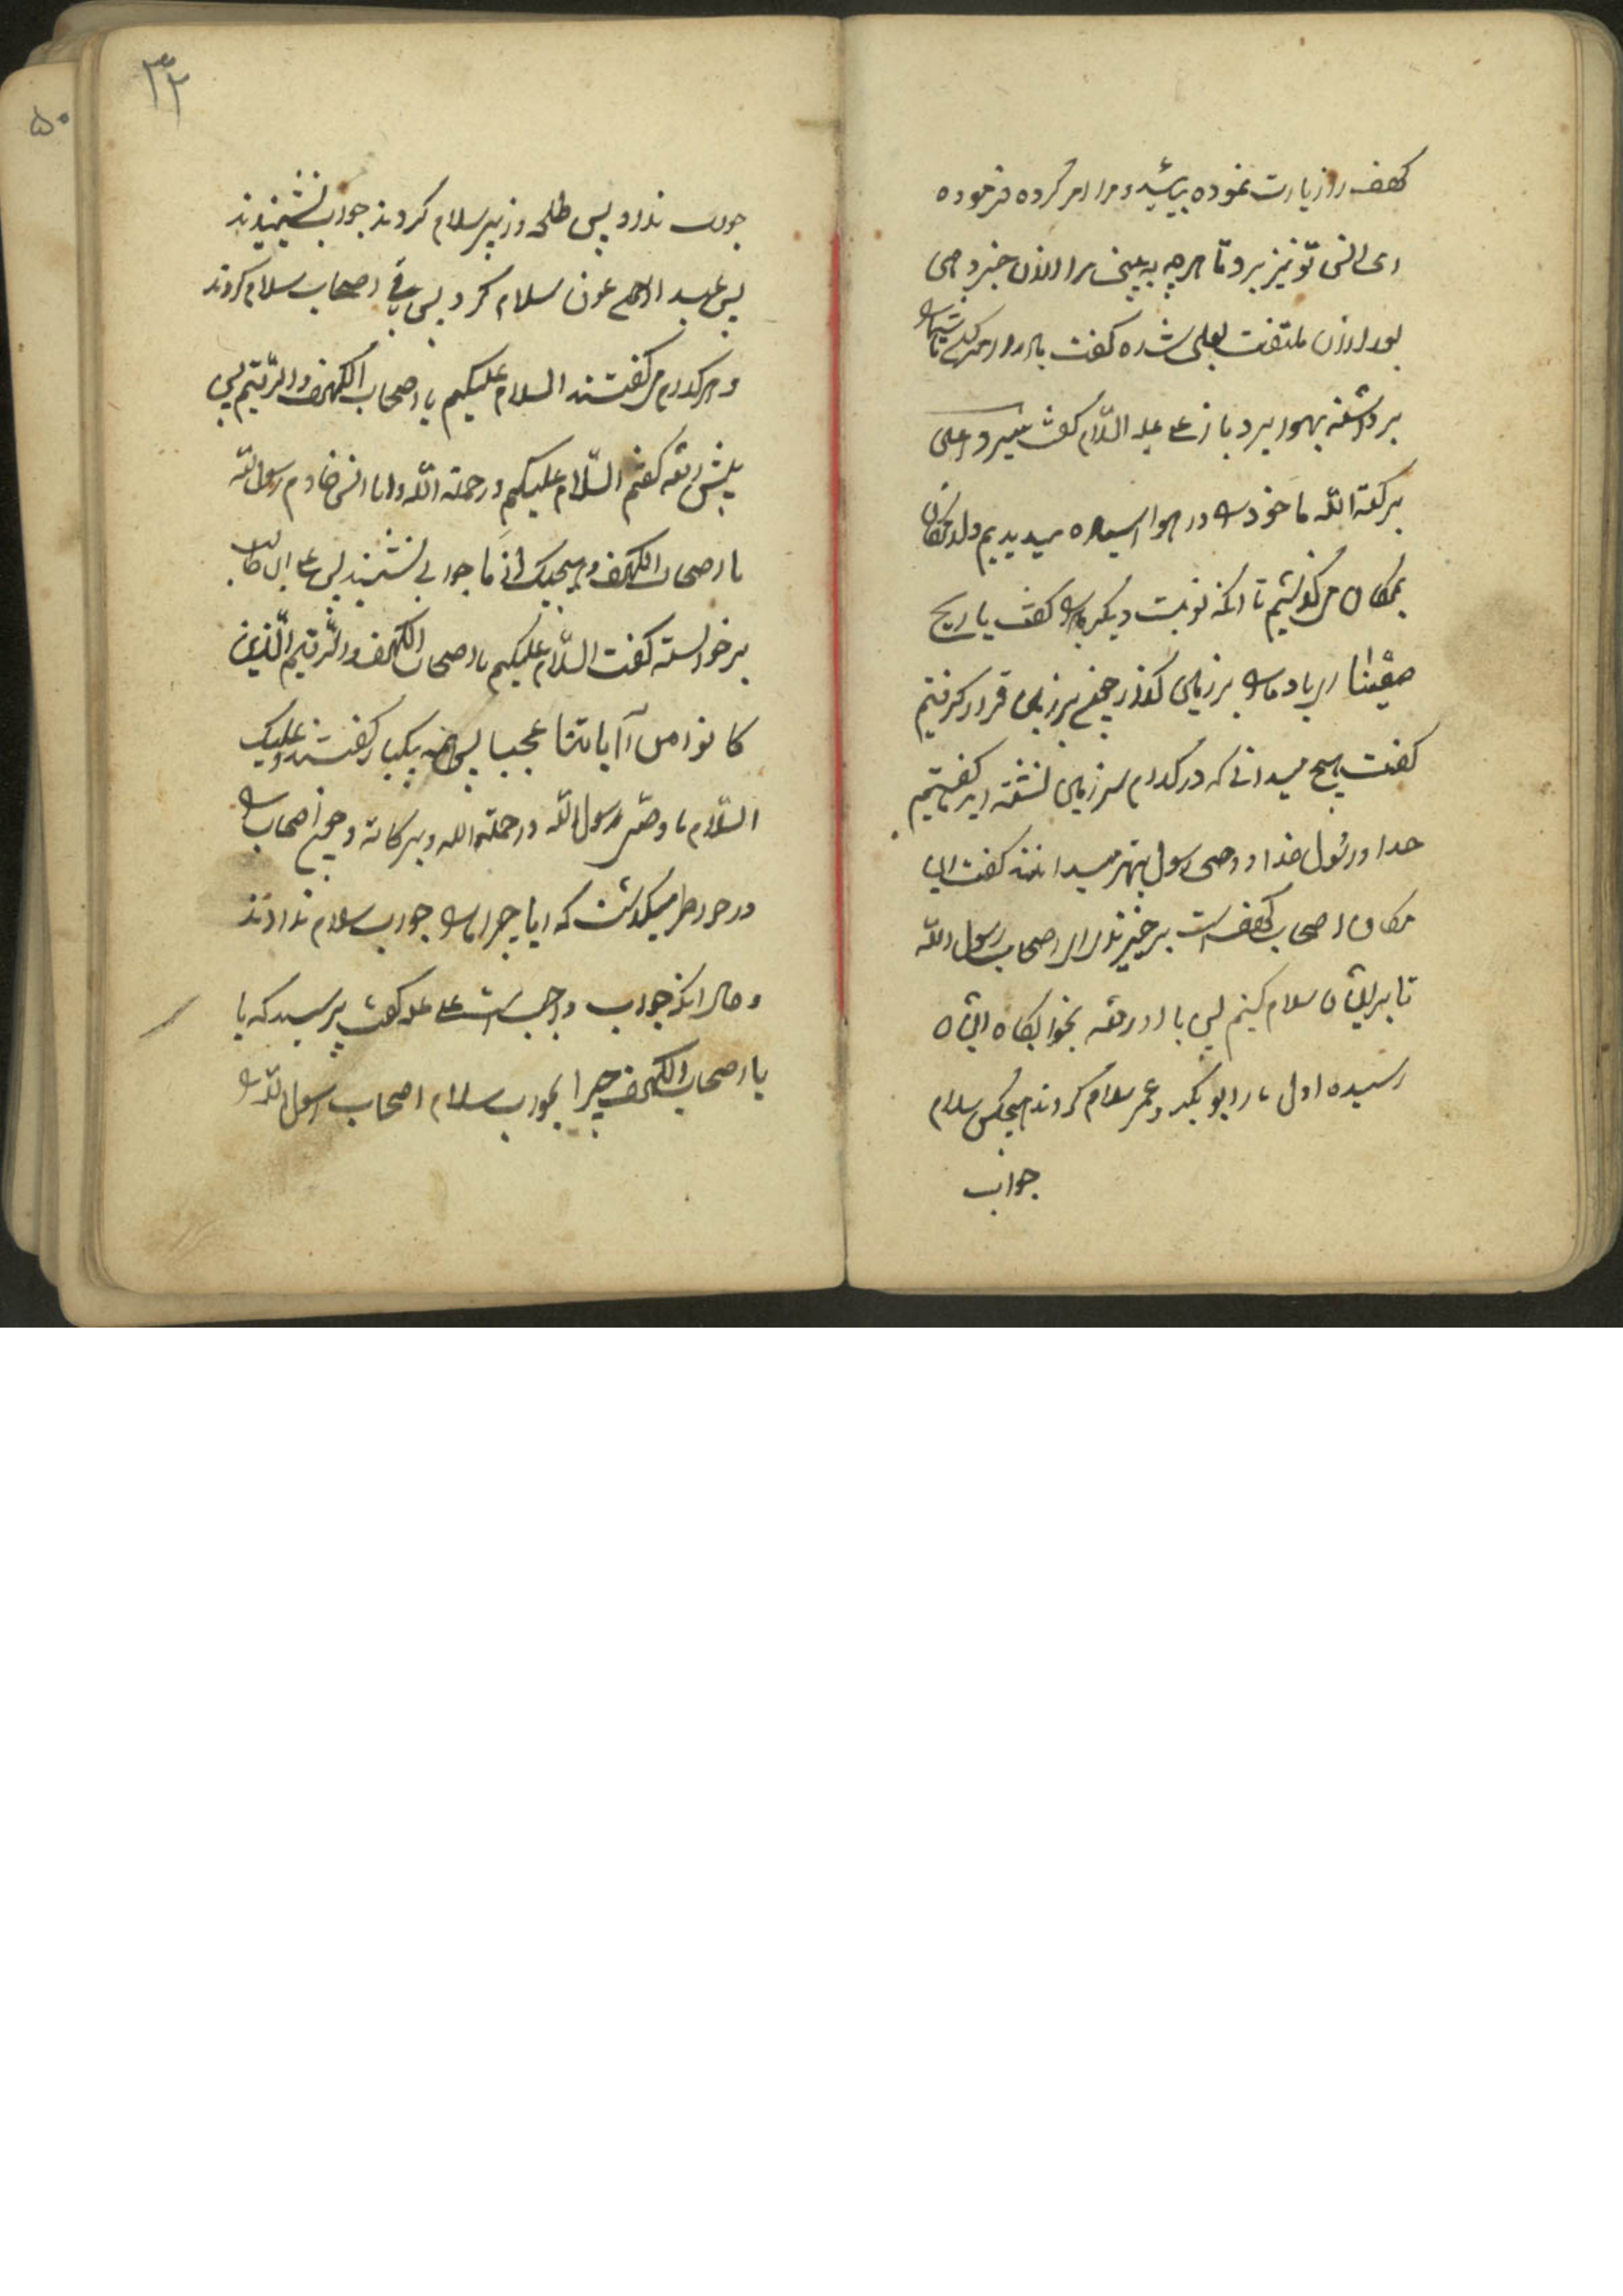 کهف را زیارت نموده بیائید و مرا امر کرده فرموده
ای انس تو نیز برو تا هرچه به بینی مرا ازان خبر دهی
بعد ازان ملتفت بعلی شده گفت باد را امر کن تا شما را
برداشته بهوا برد باز علی علیه السّلام گفت سیرو علی
برکة الله ما خود را در هوا میدیدیم و از مکان
بمکان میگذشتیم تا انکه نوبت دیگر گفت یا ریح
ضعینا باد ما را بر زمین گذار جمیع بر زمین قرار گرفتیم
گفت هیچ میدانی که در کدام سرزمین نشسته اید گفتیم
خدا و رسول خدا و وصی رسول بهتر میدانند گفت این
مکان اصحاب کهف است برخیزید ای اصحاب رسول الله
تا بر ایشان سلام کنیم پس با او رفته بخوابگاه ایشان
رسیده اول بار ابوبکر و عمر سلام کردند هیچکس سلام
جواب
جواب نداد پس طلحه و زبیر سلام کردند جواب نشنیدند
پس عبد الرحمن عوف سلام کرد پس باقی اصحاب سلام کردند
و هر کدام می گفتند السلام علیکم یا اصحاب الکهف و الرّقیم پس
پیش رفته گفتم السّلام علیکم و رحمة الله و انا انس خادم رسول الله
یا اصحاب الکهف و هیچیک از ما جوابی نشنیدند پس علی ابن ابی طالب
برخواسته گفت السّلام علیکم یا اصحاب الکهف و الرّقیم الّذین
کانوا من آیاتنا عجبا پس همه یکبار گفتند و علیک
السّلام یا وصی رسول الله و رحمة الله و برکاته و جمیع اصحاب را
در خاطر میگذشت که ایا چرا ما را جواب سلام ندادند
و حال انکه جواب واجب است علی علیه گفت پرسید که یا
یا اصحاب الکهف چرا جواب سلام اصحاب رسول الله را
۳۲
۵۰